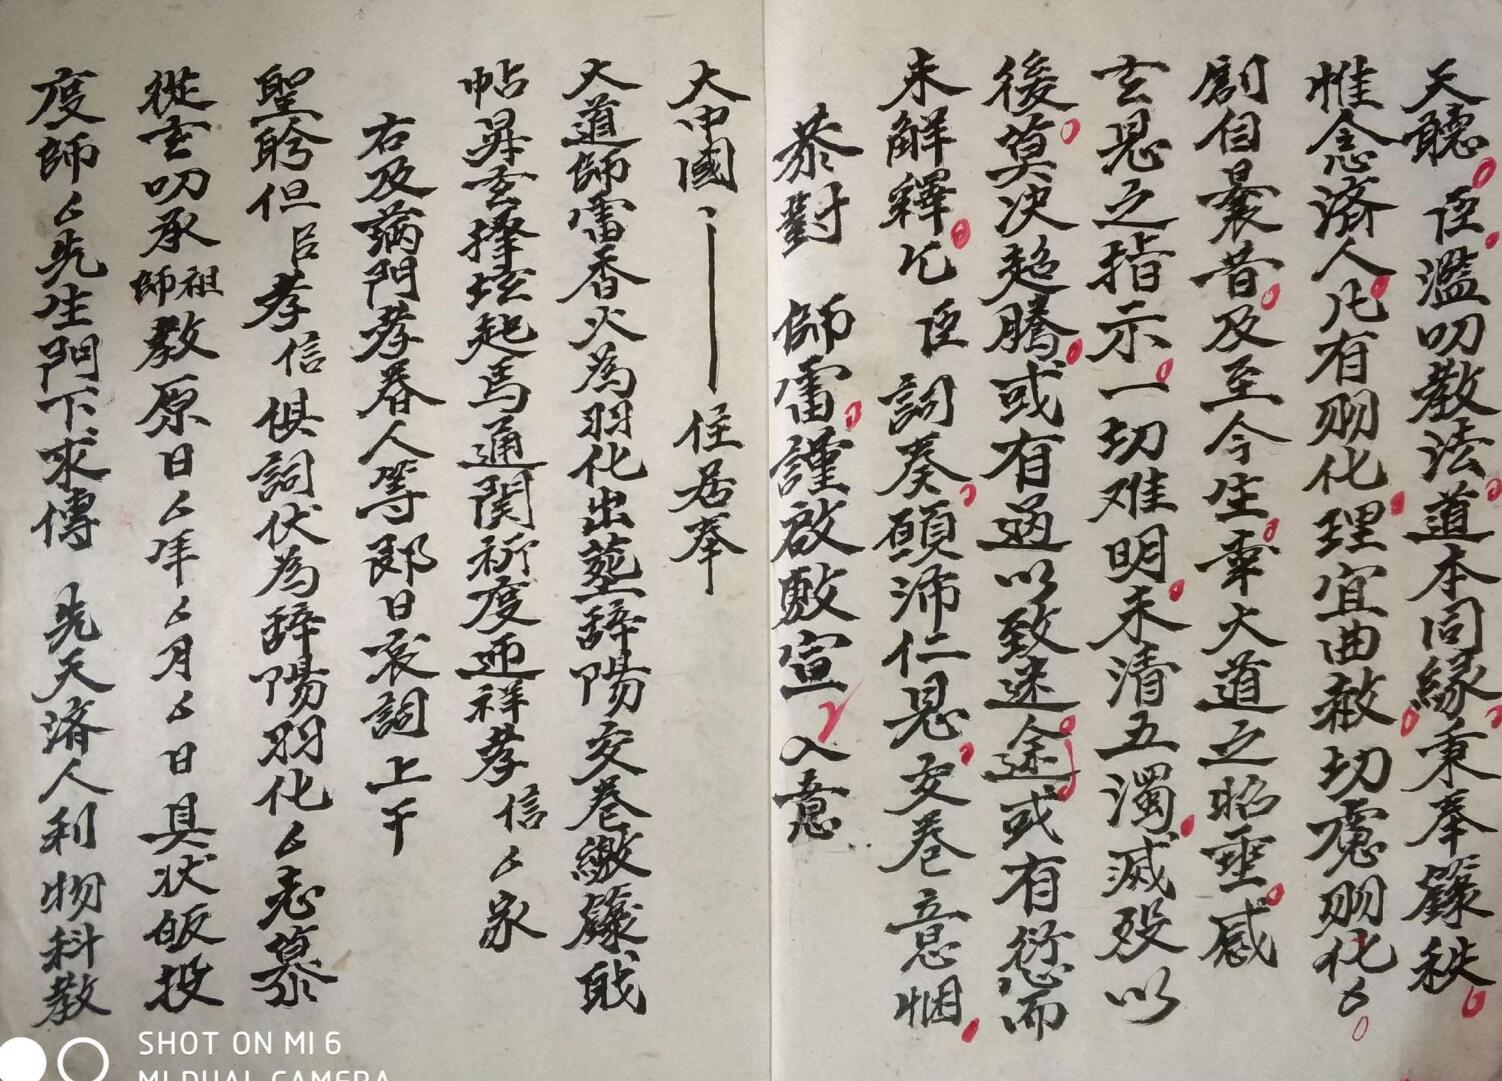 天聽臣濫叨教法道本同緣秉奉籙秩
惟念濟人凡有羽化理宜曲赦切處羽化厶
創自曩昔及至今生幸大道之昭垂感
玄恩之指示一切难明未清五濁滅殁以
後莫決超騰或有過以致迷途或有愆而
未解釋乞臣詞奏頭沛仁恩交卷意悃
恭對 師雷謹啟敷宣入意
大中國 住居奉
大道師雷香火為羽化出塟辭陽交卷繳籙戢
帖昇玄擇坛起馬通関祈度迊祥孝信厶家
右及蒳門孝眷人等即日哀詞上干
聖聆但臣孝信俱詞伏為辭陽羽化厶志慕
從玄叨承祖師教原日厶年厶月厶日具状皈投
度師厶先生門下求傳 先天濟人利物科教
SHOT ON MI 6
MI DUAL CAMERA